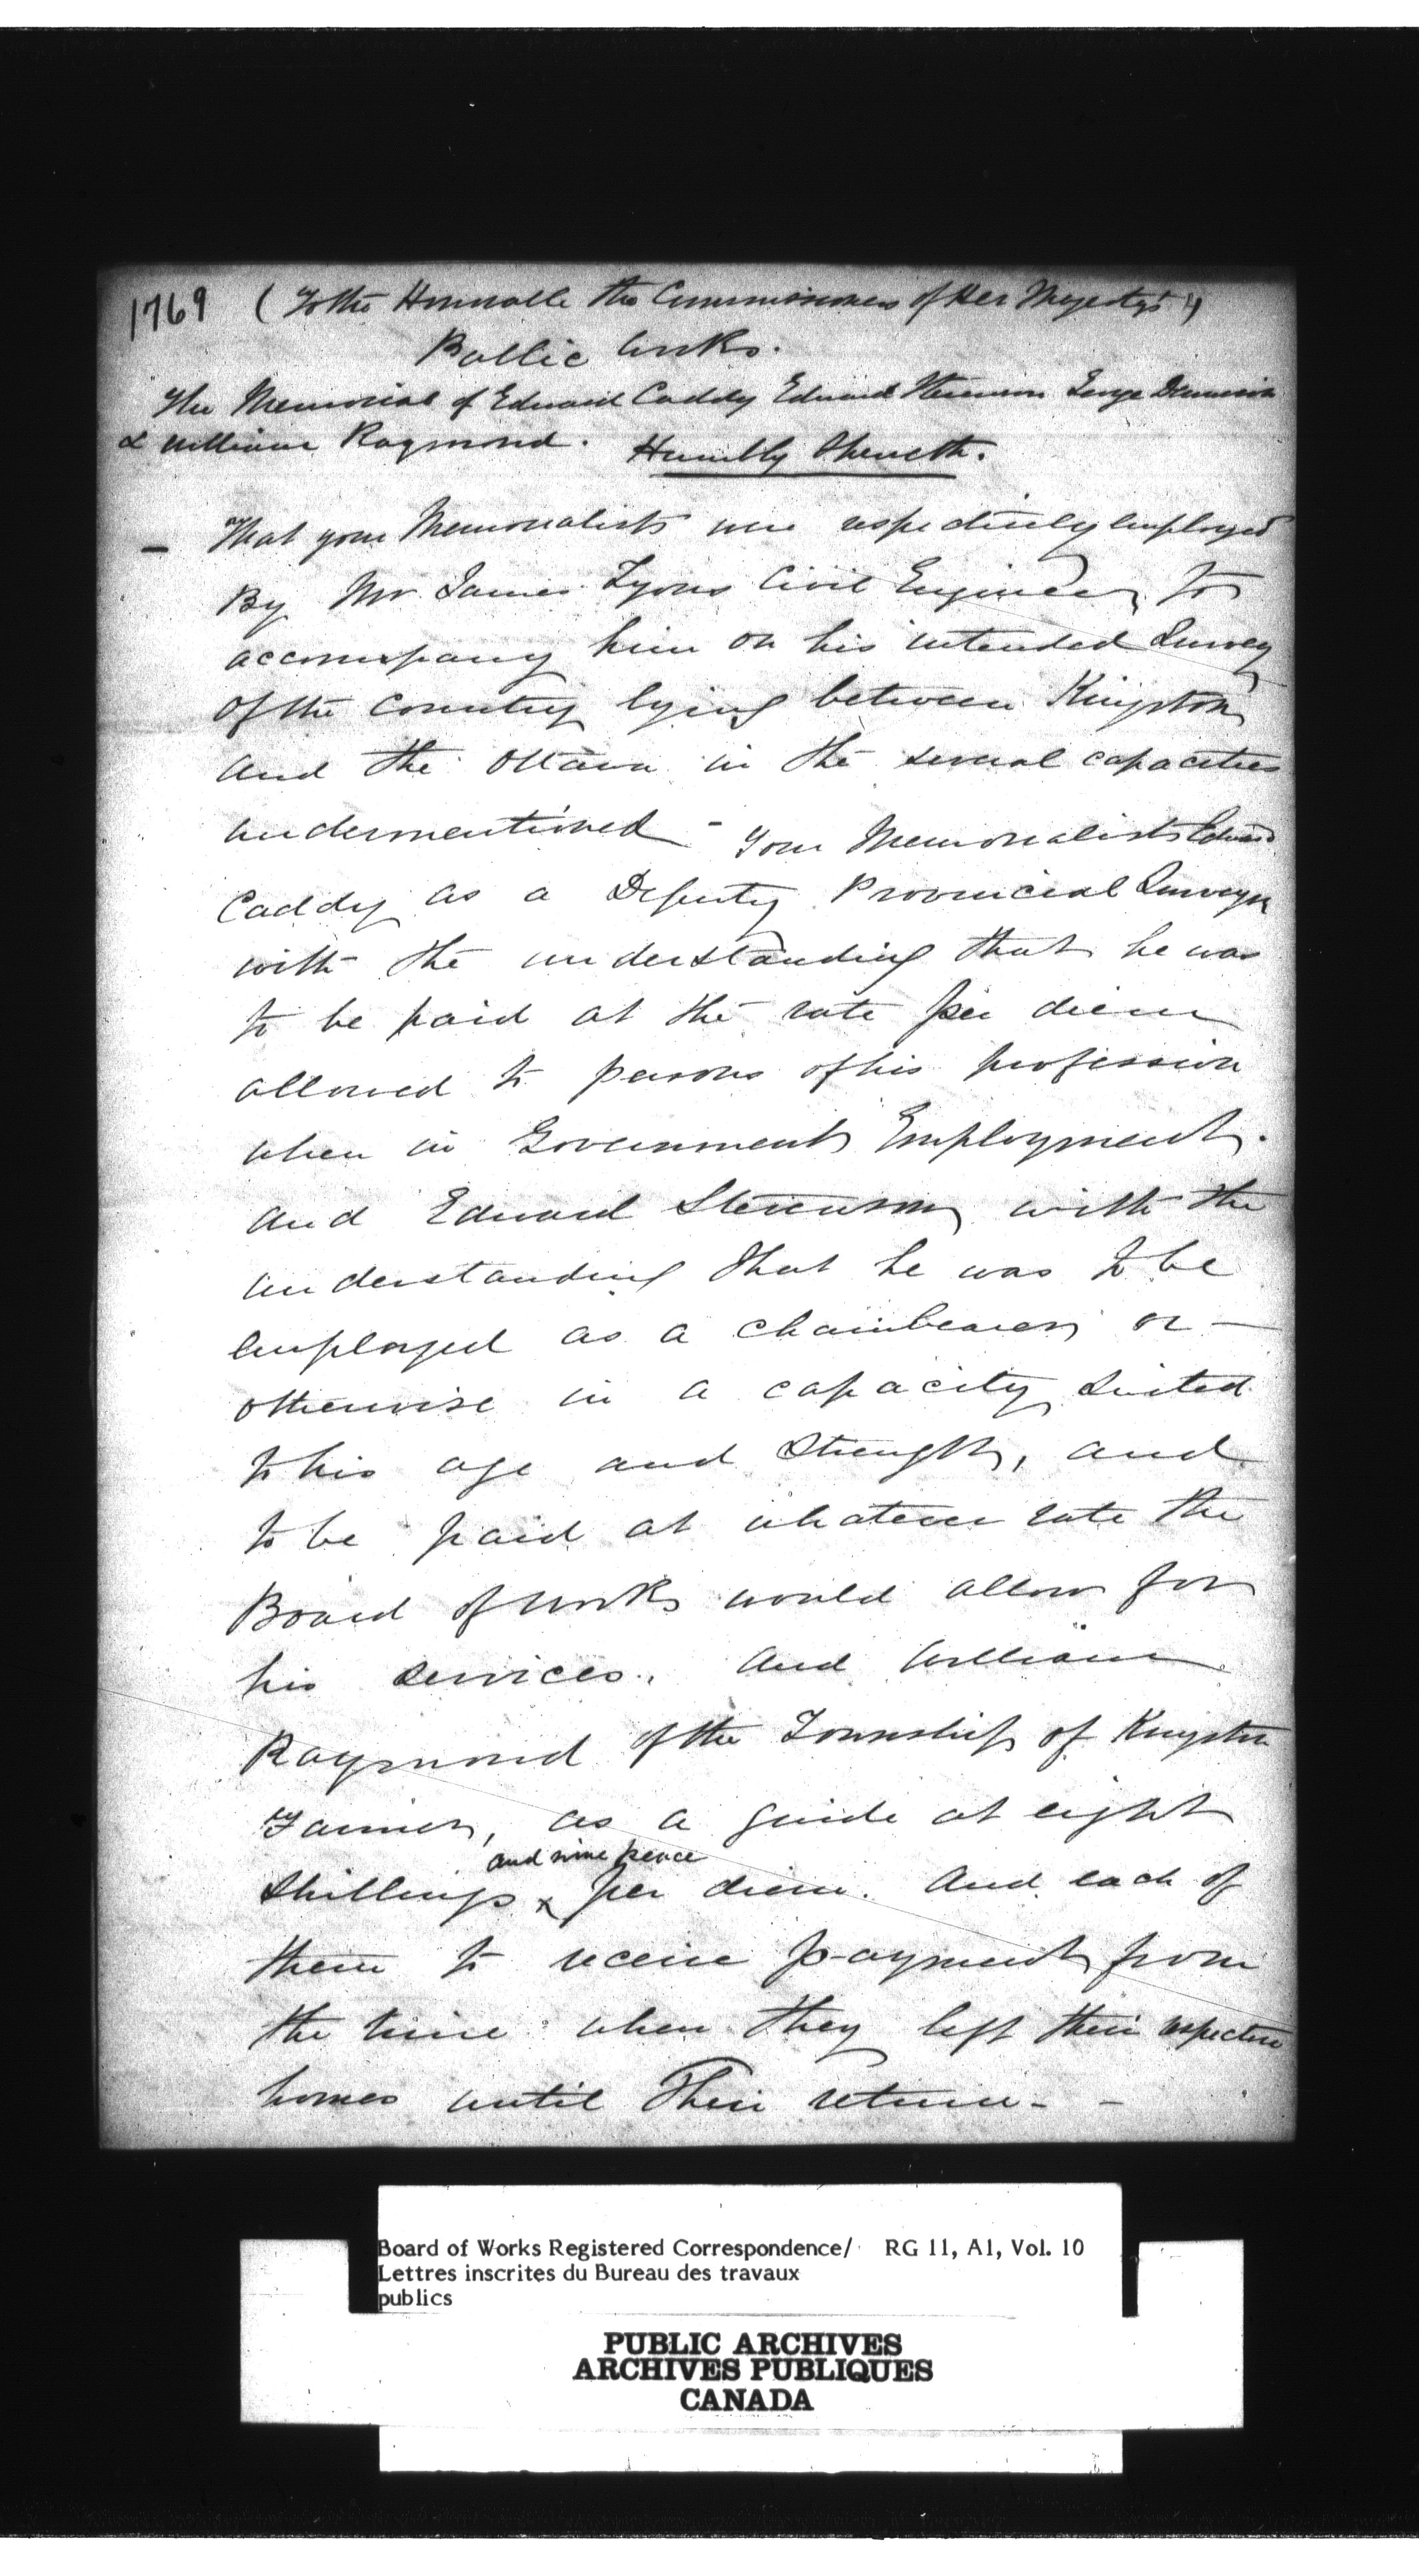 1769 (To the Honorable the Commissioners of Her Majesty's)
Public Works.
The Memorial of Edward Caddy Edward Stevenson George Dennison
& William Raymond. Humbly Sheweth.
- That your Memorialists were respectively employed
By Mr James Lyons Civil Engineer, to
accompany him on his intended Survey
Of the Country lying between Kingston
and the Ottawa in the several capacities
undermentioned - Your Memorialists Edward
Caddy as a Deputy Provincial Surveyor
with the understanding that he was
to be paid at the rate per diem
allowed to persons of his profession
when in Government Employment.
And Edward Stevenson with the
understanding that he was to be
employed as a chainbearer or -
otherwise in a capacity suited
to his age and Strength, and
to be paid at whatever rate the
Board of Works would allow for
his services. And William
Raymond of the Township of Kingston
Farmer, as a guide at eight
and nine pence
Shillings x per diem. And each of
them to receive payment from
the time when they left their respective
homes until Their return - -
Board of Works Registered Correspondence/ RG 11, A1, Vol. 10
Lettres inscrites du Bureau des travaux
publics
PUBLIC ARCHIVES
ARCHIVES PUBLIQUES
CANADA